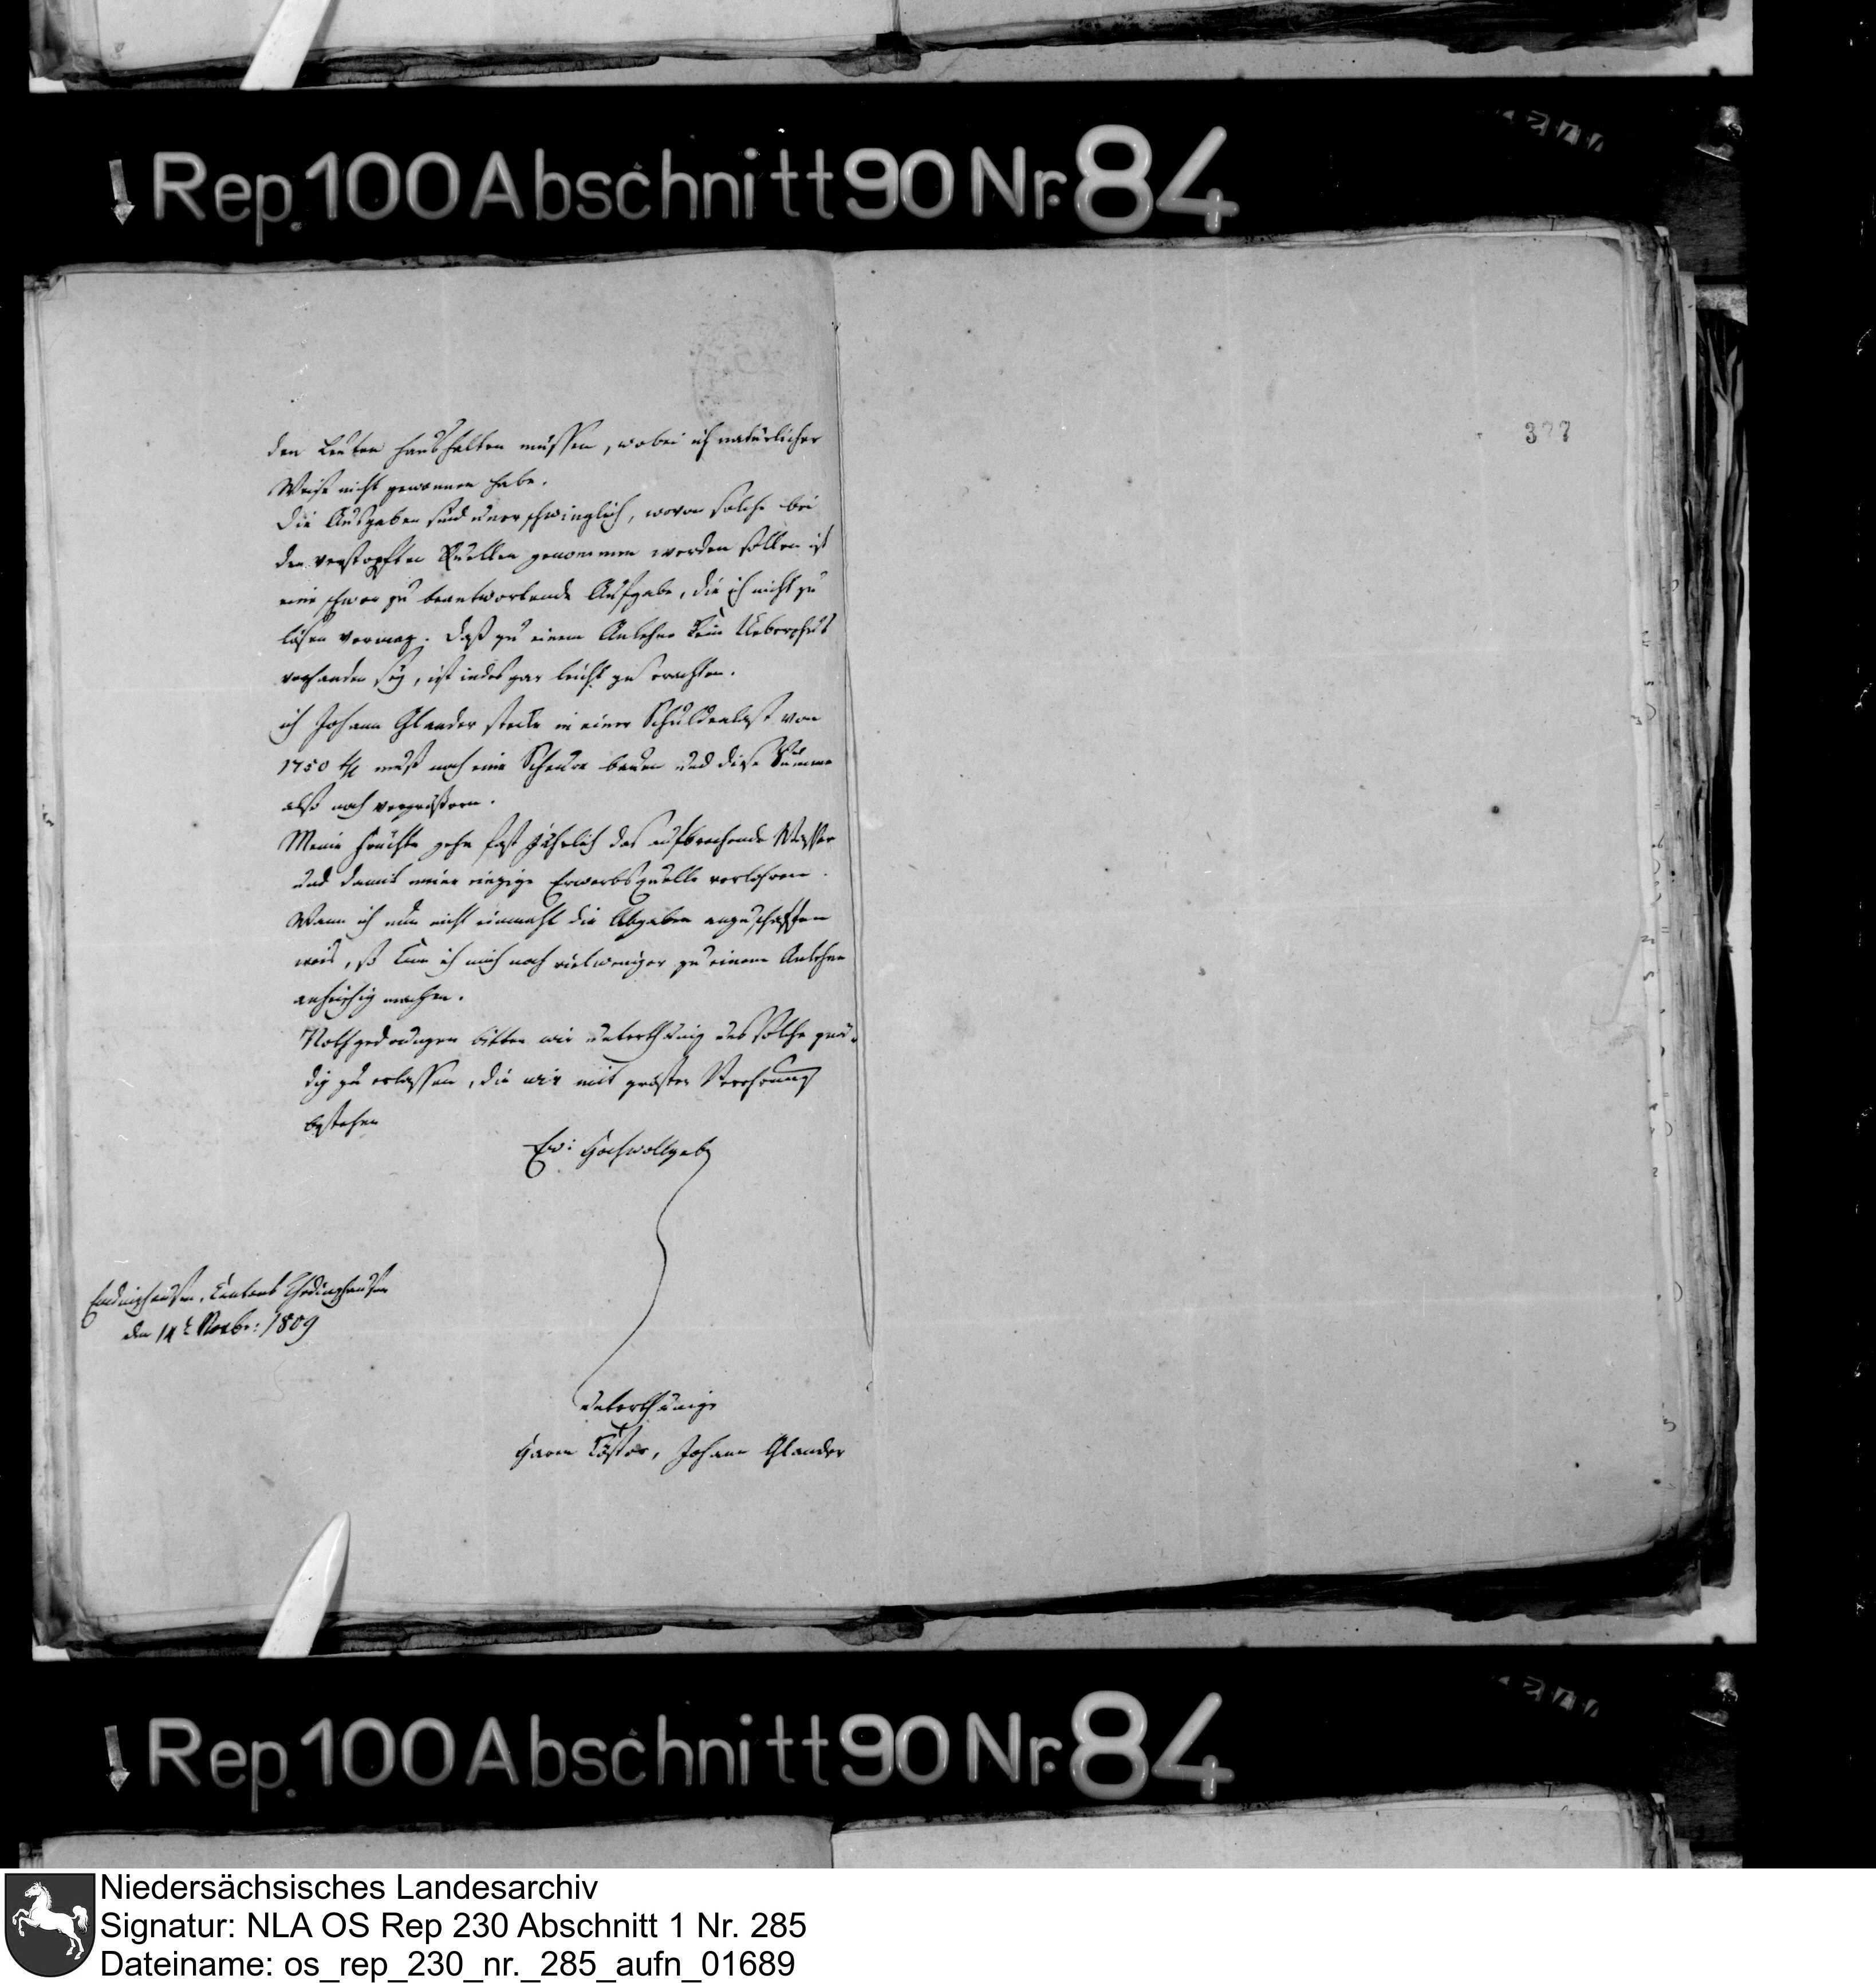 Rep. 100 Abschnitt 90 Nr. 84
377
den Leuten haushalten müssen, wobei ich natürlicher
Weise nicht gewonnen habe.
Die Ausgaben sind unerschwinglich, wovon solche bei
den verstopften Quellen genommen werden sollen ist
eine schwer zu beantwortende Aufgabe, die ich nicht zu
lösen vermag. Daß zu einem Anlehne kein Ueberschus
vorhanden sey, ist indes gar leicht zu erachten.
ich Johann Glander stecke in einer Schuldenlast von
1750 muß noch eine Scheure bauen und diese Summe
also noch vergrößern.
Meine Früchte gehn fast jährlich das aufbrechende Wasser
und damit meine einzige Erwerbsquelle verlohren.
Wenn ich nun nicht einmahl die Abgaben anzuschaffen
weis, so kan ich mich noch vielweniger zu einem Anlehne
anheischig machen.
Nothgedrungen bitten wir unterthänig uns solche gnä-
dig zu erlassen, die wir mit gröster Verehrung
bestehen
Ew: Hochwollgeb
Emdinghausen, Cantons Thedinghausen
den 14t Novbr: 1809
unterthänige
Harm Köster, Johann Glander
Rep. 100 Abschnitt 90 Nr. 84
Niedersächsisches Landesarchiv
Signatur: NLA OS Rep 230 Abschnitt 1 Nr. 285
Dateiname: os_rep_230_nr._285_aufn_01689